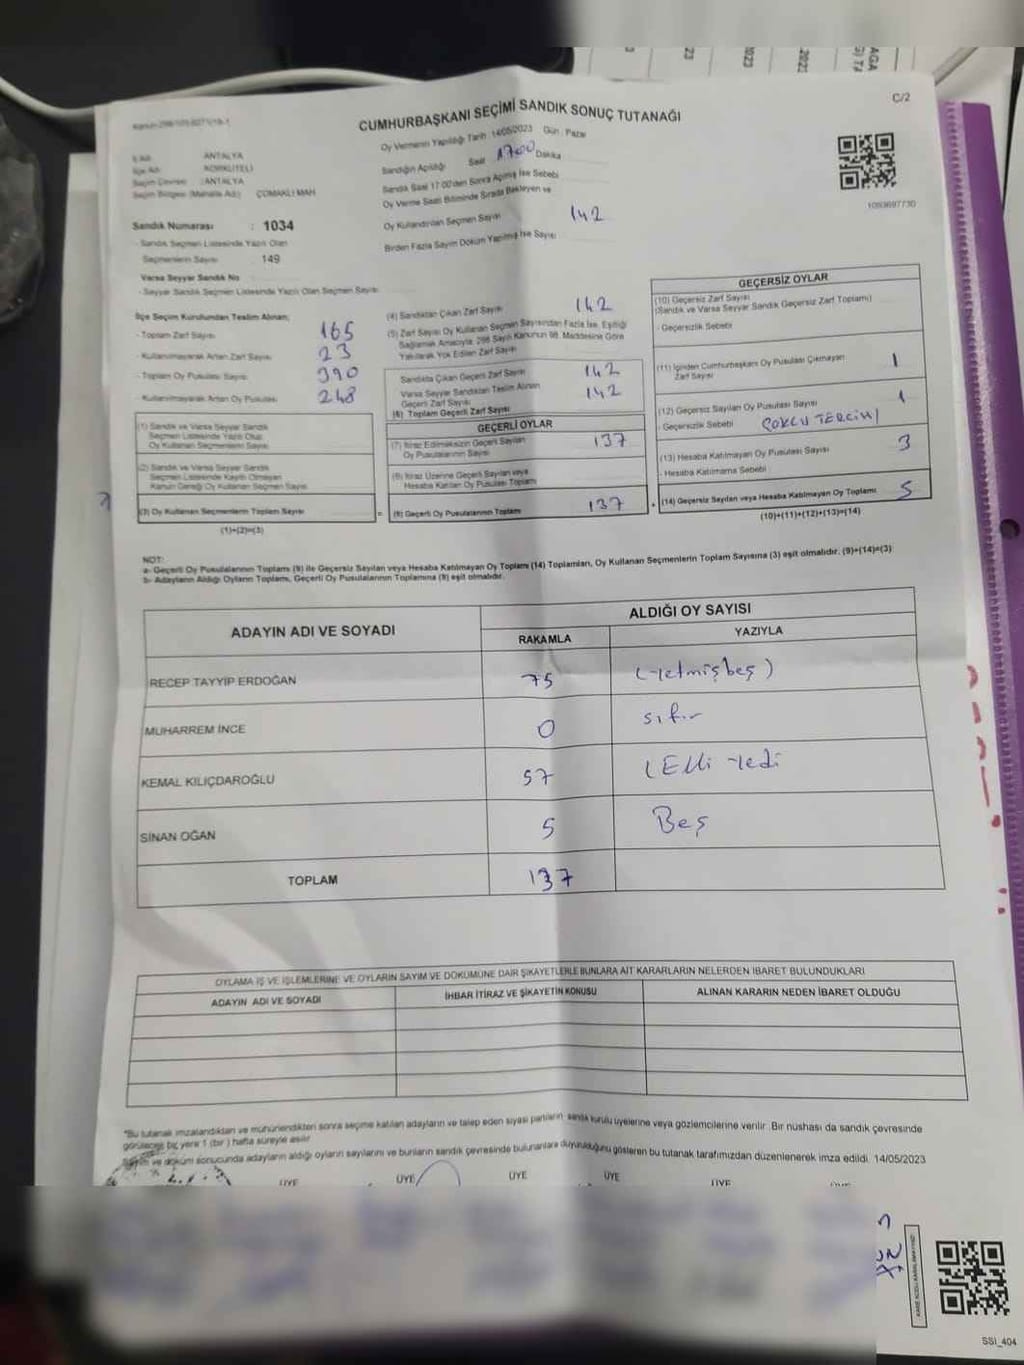 C/2
CUMHURBAŞKANI SEÇİMİ SANDIK SONUÇ TUTANAĞI
Oy Vermenin Yapıldığı Tarih 14/05/2023 Gün : Pazar
İl Adı ANTALYA
İlçe Adı KORKUTELİ
Seçim Çevresi : ANTALYA
Seçim Bölgesi (Mahalle Adı) ÇOMAKLI MAH
Sandığın Açıldığı Saat 1700 Dakika
Sandık Saat 17:00'den Sonra Açılmış İse Sebebi
Oy Verme Saati Bitiminde Sırada Bekleyen ve
Oy Kullandırılan Seçmen Sayısı 142
Birden Fazla Sayım Döküm Yapılmış İse Sayısı
1093697730
Sandık Numarası : 1034
- Sandık Seçmen Listesinde Yazılı Olan
Seçmenlerin Sayısı 149
Varsa Seyyar Sandık No
- Seyyar Sandık Seçmen Listesinde Yazılı Olan Seçmen Sayısı
İlçe Seçim Kurulundan Teslim Alınan;
- Toplam Zarf Sayısı 165
- Kullanılmayarak Artan Zarf Sayısı 23
- Toplam Oy Pusulası Sayısı 390
- Kullanılmayarak Artan Oy Pusulası 248
(1) Sandık ve Varsa Seyyar Sandık
Seçmen Listesinde Yazılı Olup
Oy Kullanan Seçmenlerin Sayısı
(2) Sandık ve Varsa Seyyar Sandık
Seçmen Listesinde Kayıtlı Olmayan
Kanun Gereği Oy Kullanan Seçmen Sayısı
(3) Oy Kullanan Seçmenlerin Toplam Sayısı
(1)+(2)=(3)
(4) Sandıktan Çıkan Zarf Sayısı 142
(5) Zarf Sayısı Oy Kullanan Seçmen Sayısından Fazla İse, Eşitliği
Sağlamak Amacıyla, 298 Sayılı Kanunun 98. Maddesine Göre
Yakılarak Yok Edilen Zarf Sayısı
Sandıkta Çıkan Geçerli Zarf Sayısı 142
Varsa Seyyar Sandıktan Teslim Alınan
Geçerli Zarf Sayısı 142
(6) Toplam Geçerli Zarf Sayısı
GEÇERLİ OYLAR
(7) İtiraz Edilmeksizin Geçerli Sayılan
Oy Pusulalarının Sayısı 137
(8) İtiraz Üzerine Geçerli Sayılan veya
Hesaba Katılan Oy Pusulası Toplamı
= (9) Geçerli Oy Pusulalarının Toplamı 137
GEÇERSİZ OYLAR
(10) Geçersiz Zarf Sayısı
(Sandık ve Varsa Seyyar Sandık Geçersiz Zarf Toplamı)
- Geçersizlik Sebebi
(11) İçinden Cumhurbaşkanı Oy Pusulası Çıkmayan
Zarf Sayısı 1
(12) Geçersiz Sayılan Oy Pusulası Sayısı 1
- Geçersizlik Sebebi ÇOKLU TERCİH
(13) Hesaba Katılmayan Oy Pusulası Sayısı 3
- Hesaba Katılmama Sebebi
+ (14) Geçersiz Sayılan veya Hesaba Katılmayan Oy Toplamı 5
(10)+(11)+(12)+(13)=(14)
NOT:
a- Geçerli Oy Pusulalarının Toplamı (9) ile Geçersiz Sayılan veya Hesaba Katılmayan Oy Toplamı (14) Toplamları, Oy Kullanan Seçmenlerin Toplam Sayısına (3) eşit olmalıdır. (9)+(14)=(3)
b- Adayların Aldığı Oyların Toplamı, Geçerli Oy Pusulalarının Toplamına (9) eşit olmalıdır.
ADAYIN ADI VE SOYADI
ALDIĞI OY SAYISI
RAKAMLA YAZIYLA
RECEP TAYYİP ERDOĞAN 75 (Yetmişbeş)
MUHARREM İNCE 0 sıfır
KEMAL KILIÇDAROĞLU 57 (Elli Yedi
SİNAN OĞAN 5 Beş
TOPLAM 137
OYLAMA İŞ VE İŞLEMLERİNE VE OYLARIN SAYIM VE DÖKÜMÜNE DAİR ŞİKAYETLERLE BUNLARA AİT KARARLARIN NELERDEN İBARET BULUNDUKLARI
ADAYIN ADI VE SOYADI İHBAR İTİRAZ VE ŞİKAYETİN KONUSU ALINAN KARARIN NEDEN İBARET OLDUĞU
*Bu tutanak imzalandıktan ve mühürlendikten sonra seçime katılan adayların ve talep eden siyasi partilerin sandık kurulu üyelerine veya gözlemcilerine verilir. Bir nüshası da sandık çevresinde
görülecek bir yere 1 (bir) hafta süreyle asılır
Sayım ve döküm sonucunda adayların aldığı oyların sayılarını ve bunların sandık çevresinde bulunanlara duyurulduğunu gösteren bu tutanak tarafımızdan düzenlenerek imza edildi. 14/05/2023
ÜYE ÜYE ÜYE ÜYE ÜYE
SSI_404